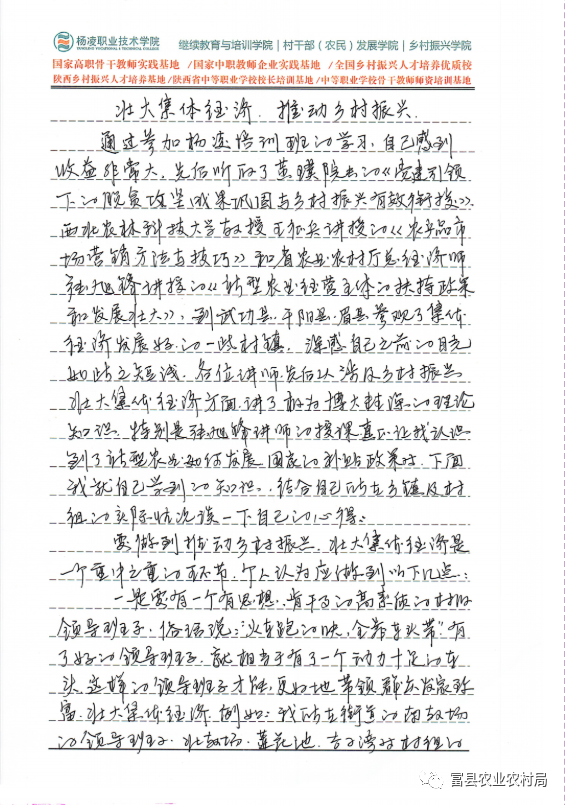 杨凌职业技术学院
继续教育与培训学院|村干部(农民)发展学院|乡村振兴学院
国家高职骨干教师实践基地 /国家中职教师企业实践基地 /全国乡村振兴人才培养优质校
陕西乡村振兴人才培养基地/陕西省中等职业学校校长培训基地/中等职业学校骨干教师师资培训基地
壮大集体经济,推动乡村振兴
通过参加杨凌培训班的学习,自己感到
收益非常大,先后听取了黄璞院长的《党建引领
下的脱贫攻坚成果巩固与乡村振兴有效衔接》
西北农林科技大学教授王征兵讲授的《农产品市
场营销方法与技巧》和省农业农村厅总经济师
旭锋讲授的《新型农业经营主体的扶持政策
和发展壮大》,到武功县、千阳县、眉县参观了集体
经济发展好的一些村镇,深感自己之前的目光
如此之短浅。各位讲师先后以涉及乡村振兴
壮大集体经济方面讲了较为博大精深的理论
知识。特别是张旭锋讲师的授课真正让我认识
到了新型农业如何发展,国家的补贴政策等,下面
我就自己学到的知识,结合自己所在乡镇及村
组的实际情况谈一下自己的心得:
要做到推动乡村振兴,壮大集体经济是
一个重中之重的环节,个人认为应做到以下几点:
一是要有一个有思想、肯干事的高素质的村级
领导班子,俗话说:"火车跑的快,全靠车头带"有
了好的领导班子,就相当于有了一个动力十足的车
头,这样的领导班子才能更好地带领群众发家致
富,壮大集体经济,例如:我所在街道的南教场
的领导班子,北教场、莲花池、吉子湾等村组的
富县农业农村局